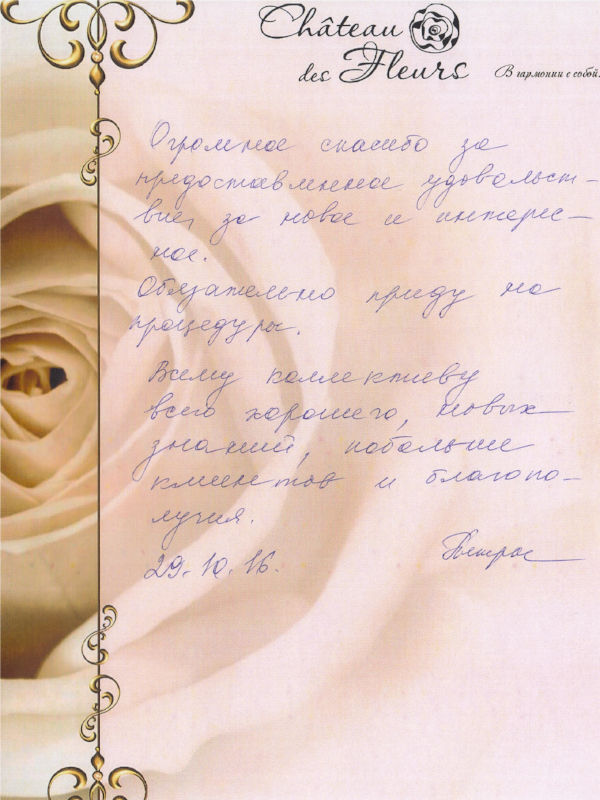 Château
des Fleurs
В гармонии с собой.
Огромное спасибо за
предоставленное удовольст-
вие, за новое и интерес-
ное.
Обязательно приду на
процедуры.
Всему коллективу
всего хорошего, новых
знаний, побольше
клиентов и благопо-
лучия.
29.10.16.